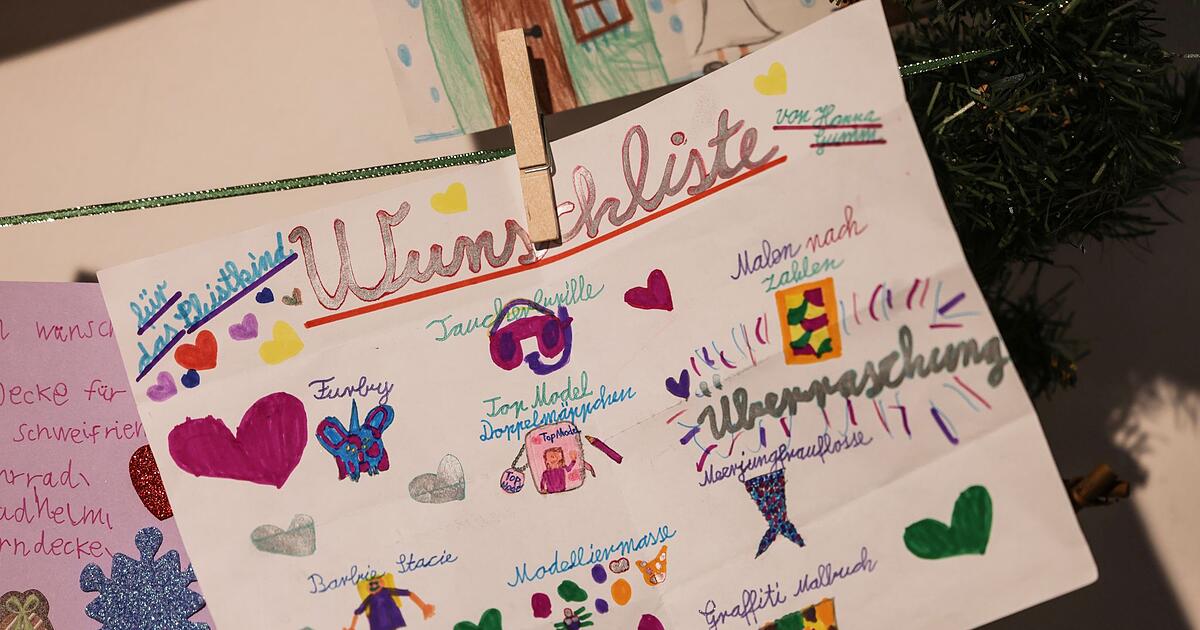 Wunschliste
von Hanna
Gumm
für
das Christkind
Taucherbrille
Malen nach
zahlen
Furby
Top Model
Doppelmäppchen
Top Model
Top
Model
Überraschung
Meerjungfrauflosse
Barbie Stacie
Modelliermasse
Graffiti Malbuch
wünsch
Decke für
Schweifrie
orrad,
adhelm,
rndecke,